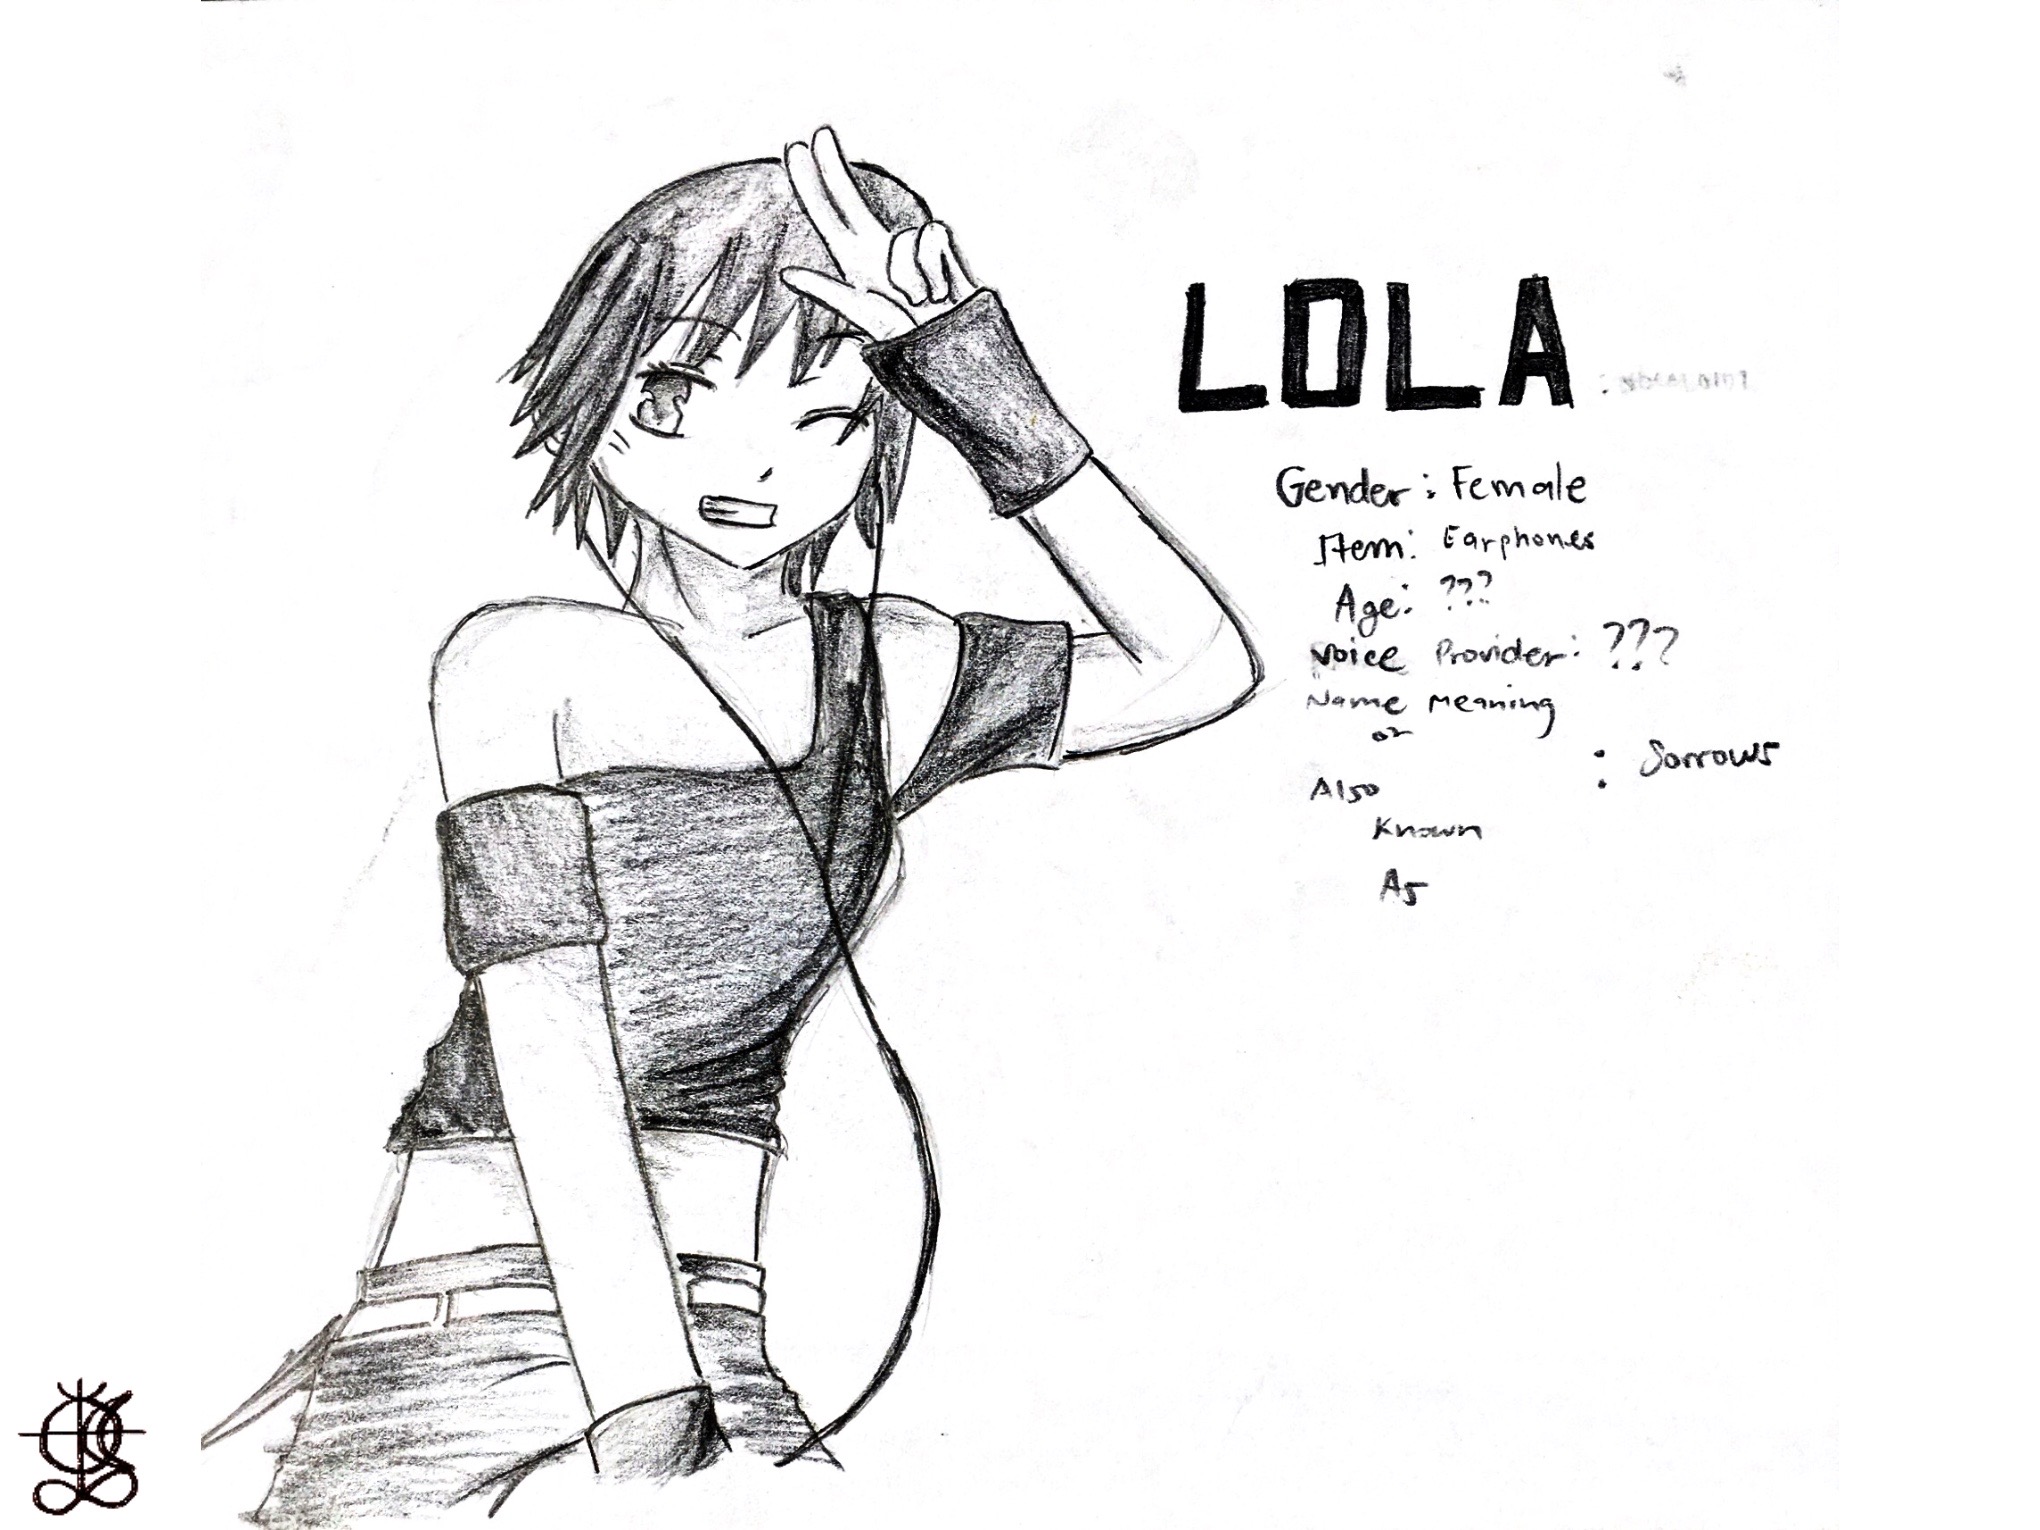 LOLA
Gender: Female
Item: Earphones
Age: ???
Voice Provider: ???
Name Meaning
or
: Sorrows
Also
Known
As